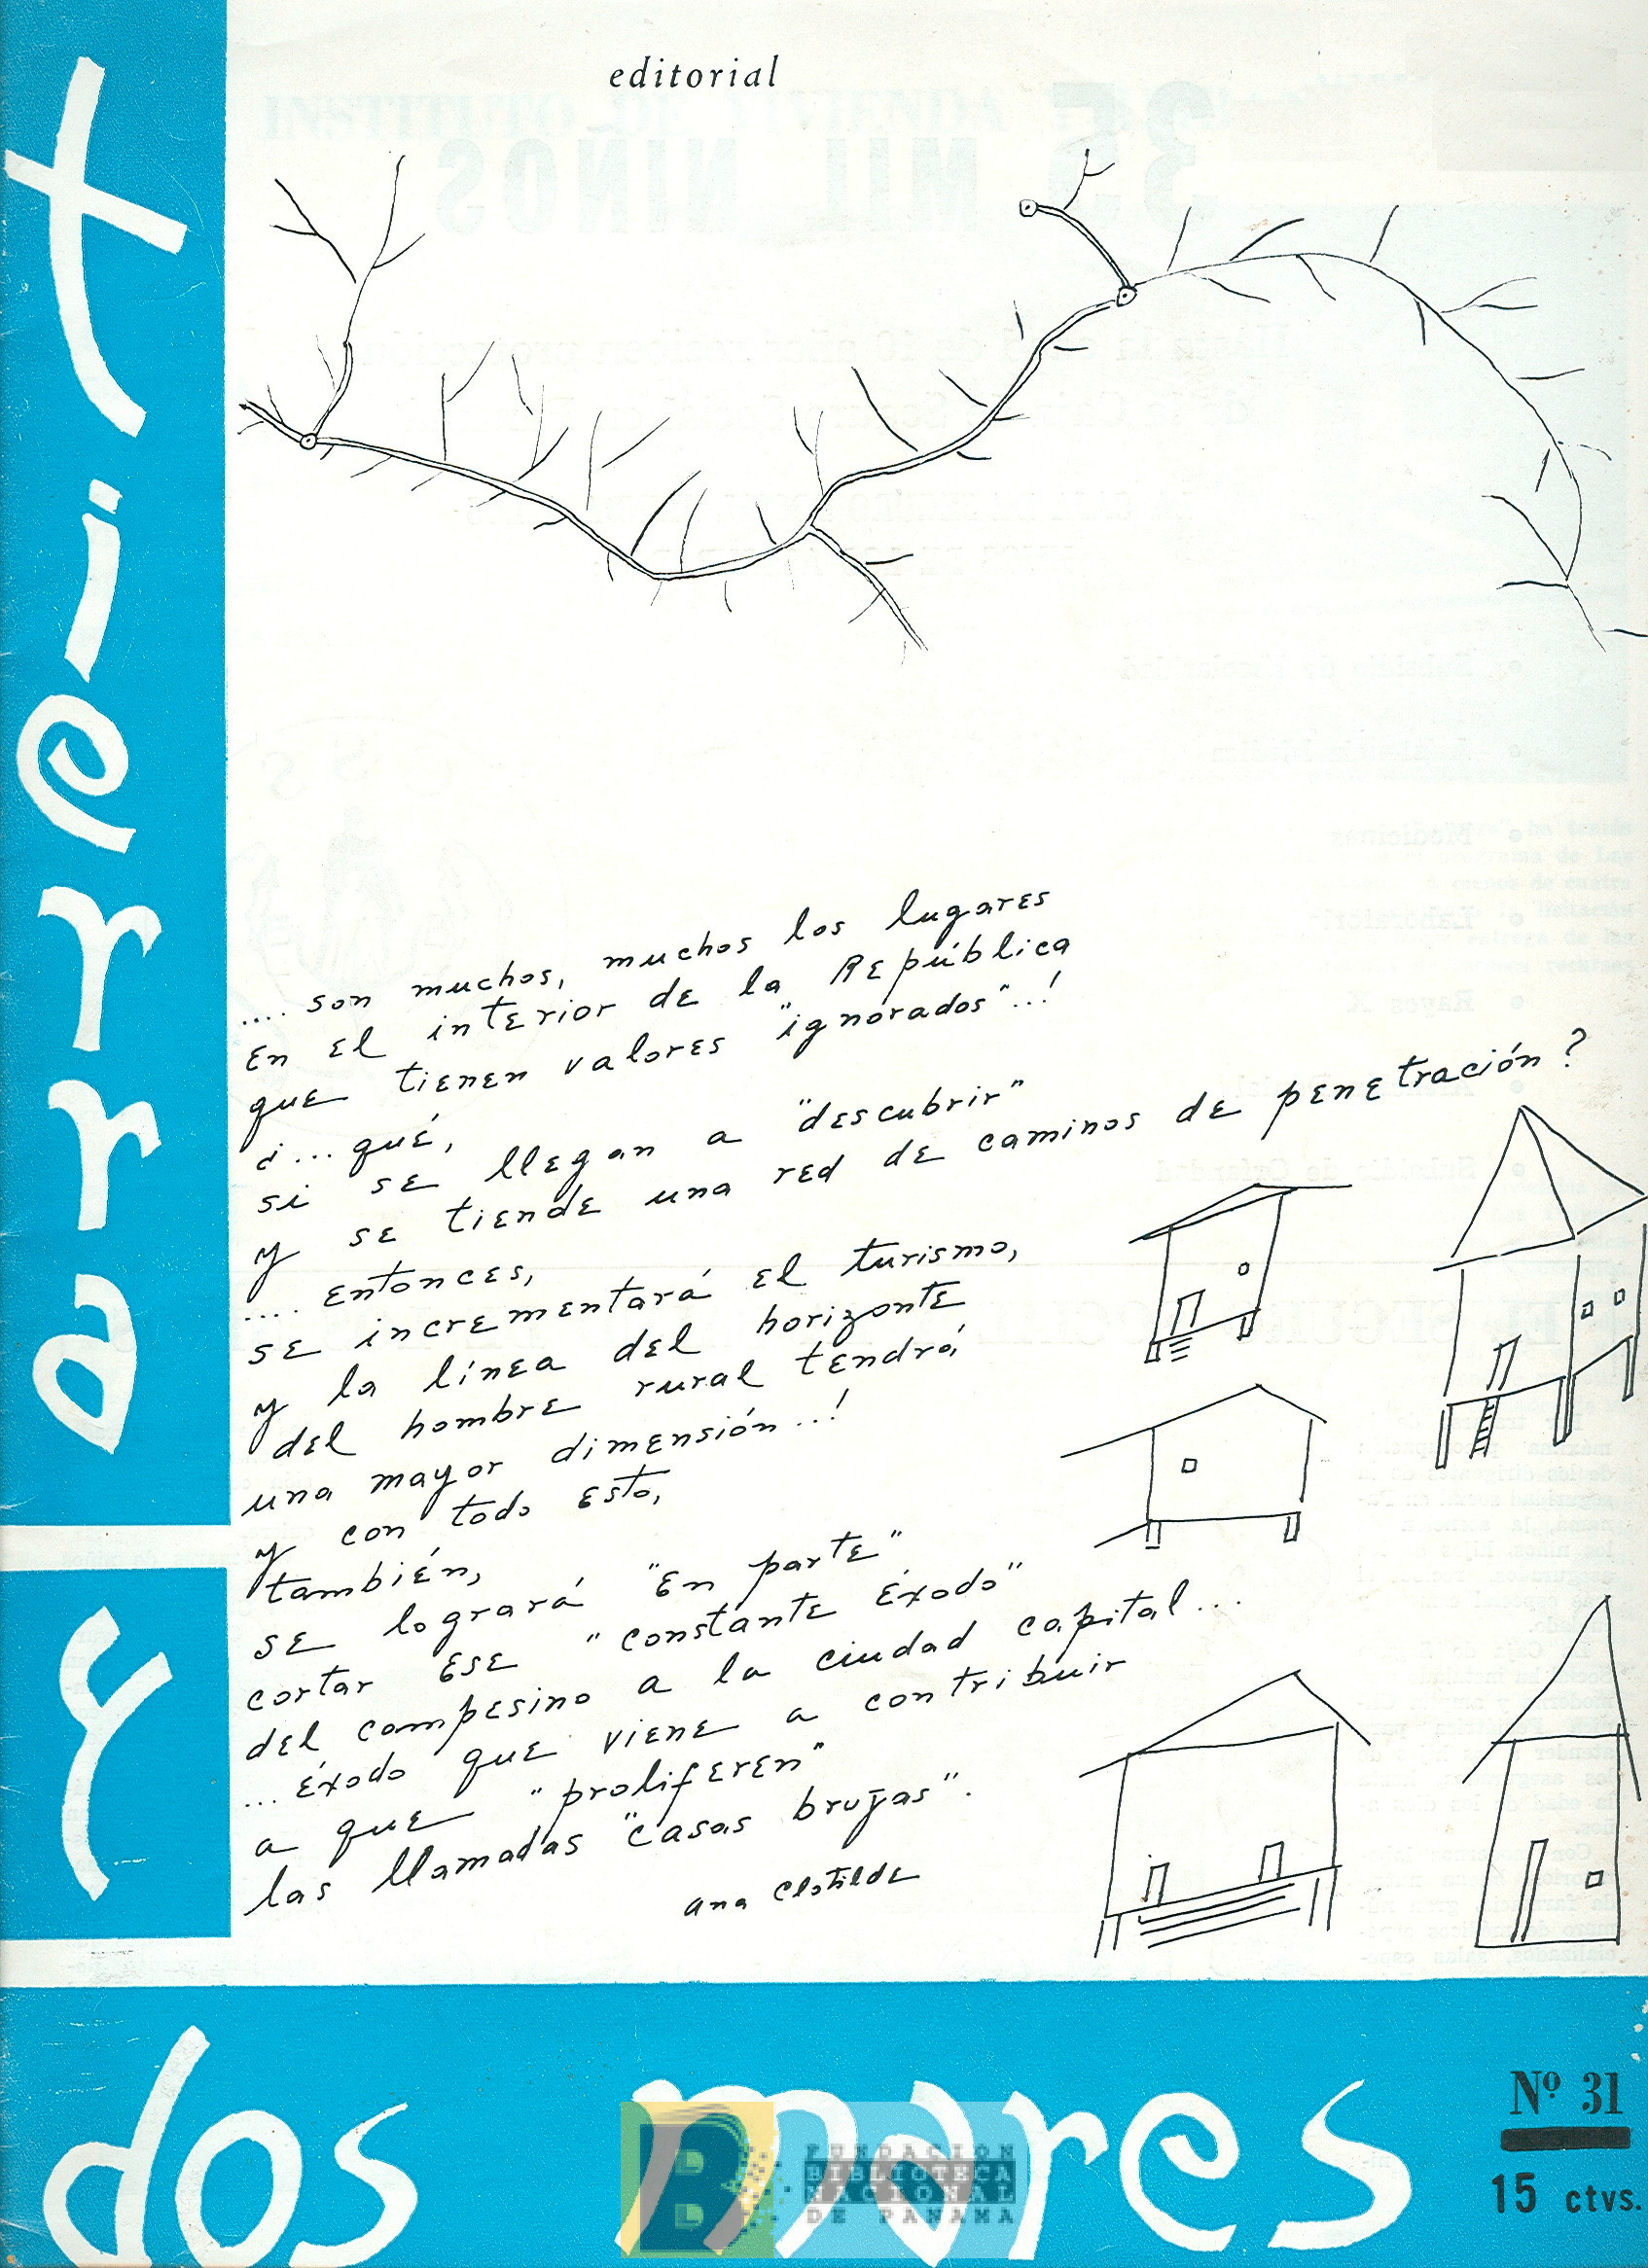 editorial
tierra
y
dos mares
.... son muchos, muchos los lugares
en el interior de la República
que tienen valores "ignorados"..!
¿... qué,
si se llegan a "descubrir"
y se tiende una red de caminos de penetración?
.... entonces,
se incrementará el turismo,
y la línea del horizonte
del hombre rural tendrá
una mayor dimensión..!
y con todo esto,
también,
se logrará "en parte"
cortar ese "constante éxodo"
del campesino a la ciudad capital...
... éxodo que viene a contribuir
a que "proliferen"
las llamadas "casas brujas".
Ana Clotilde
Nº 31
15 ctvs.
B
FUNDACION
BIBLIOTECA
NACIONAL
DE PANAMA